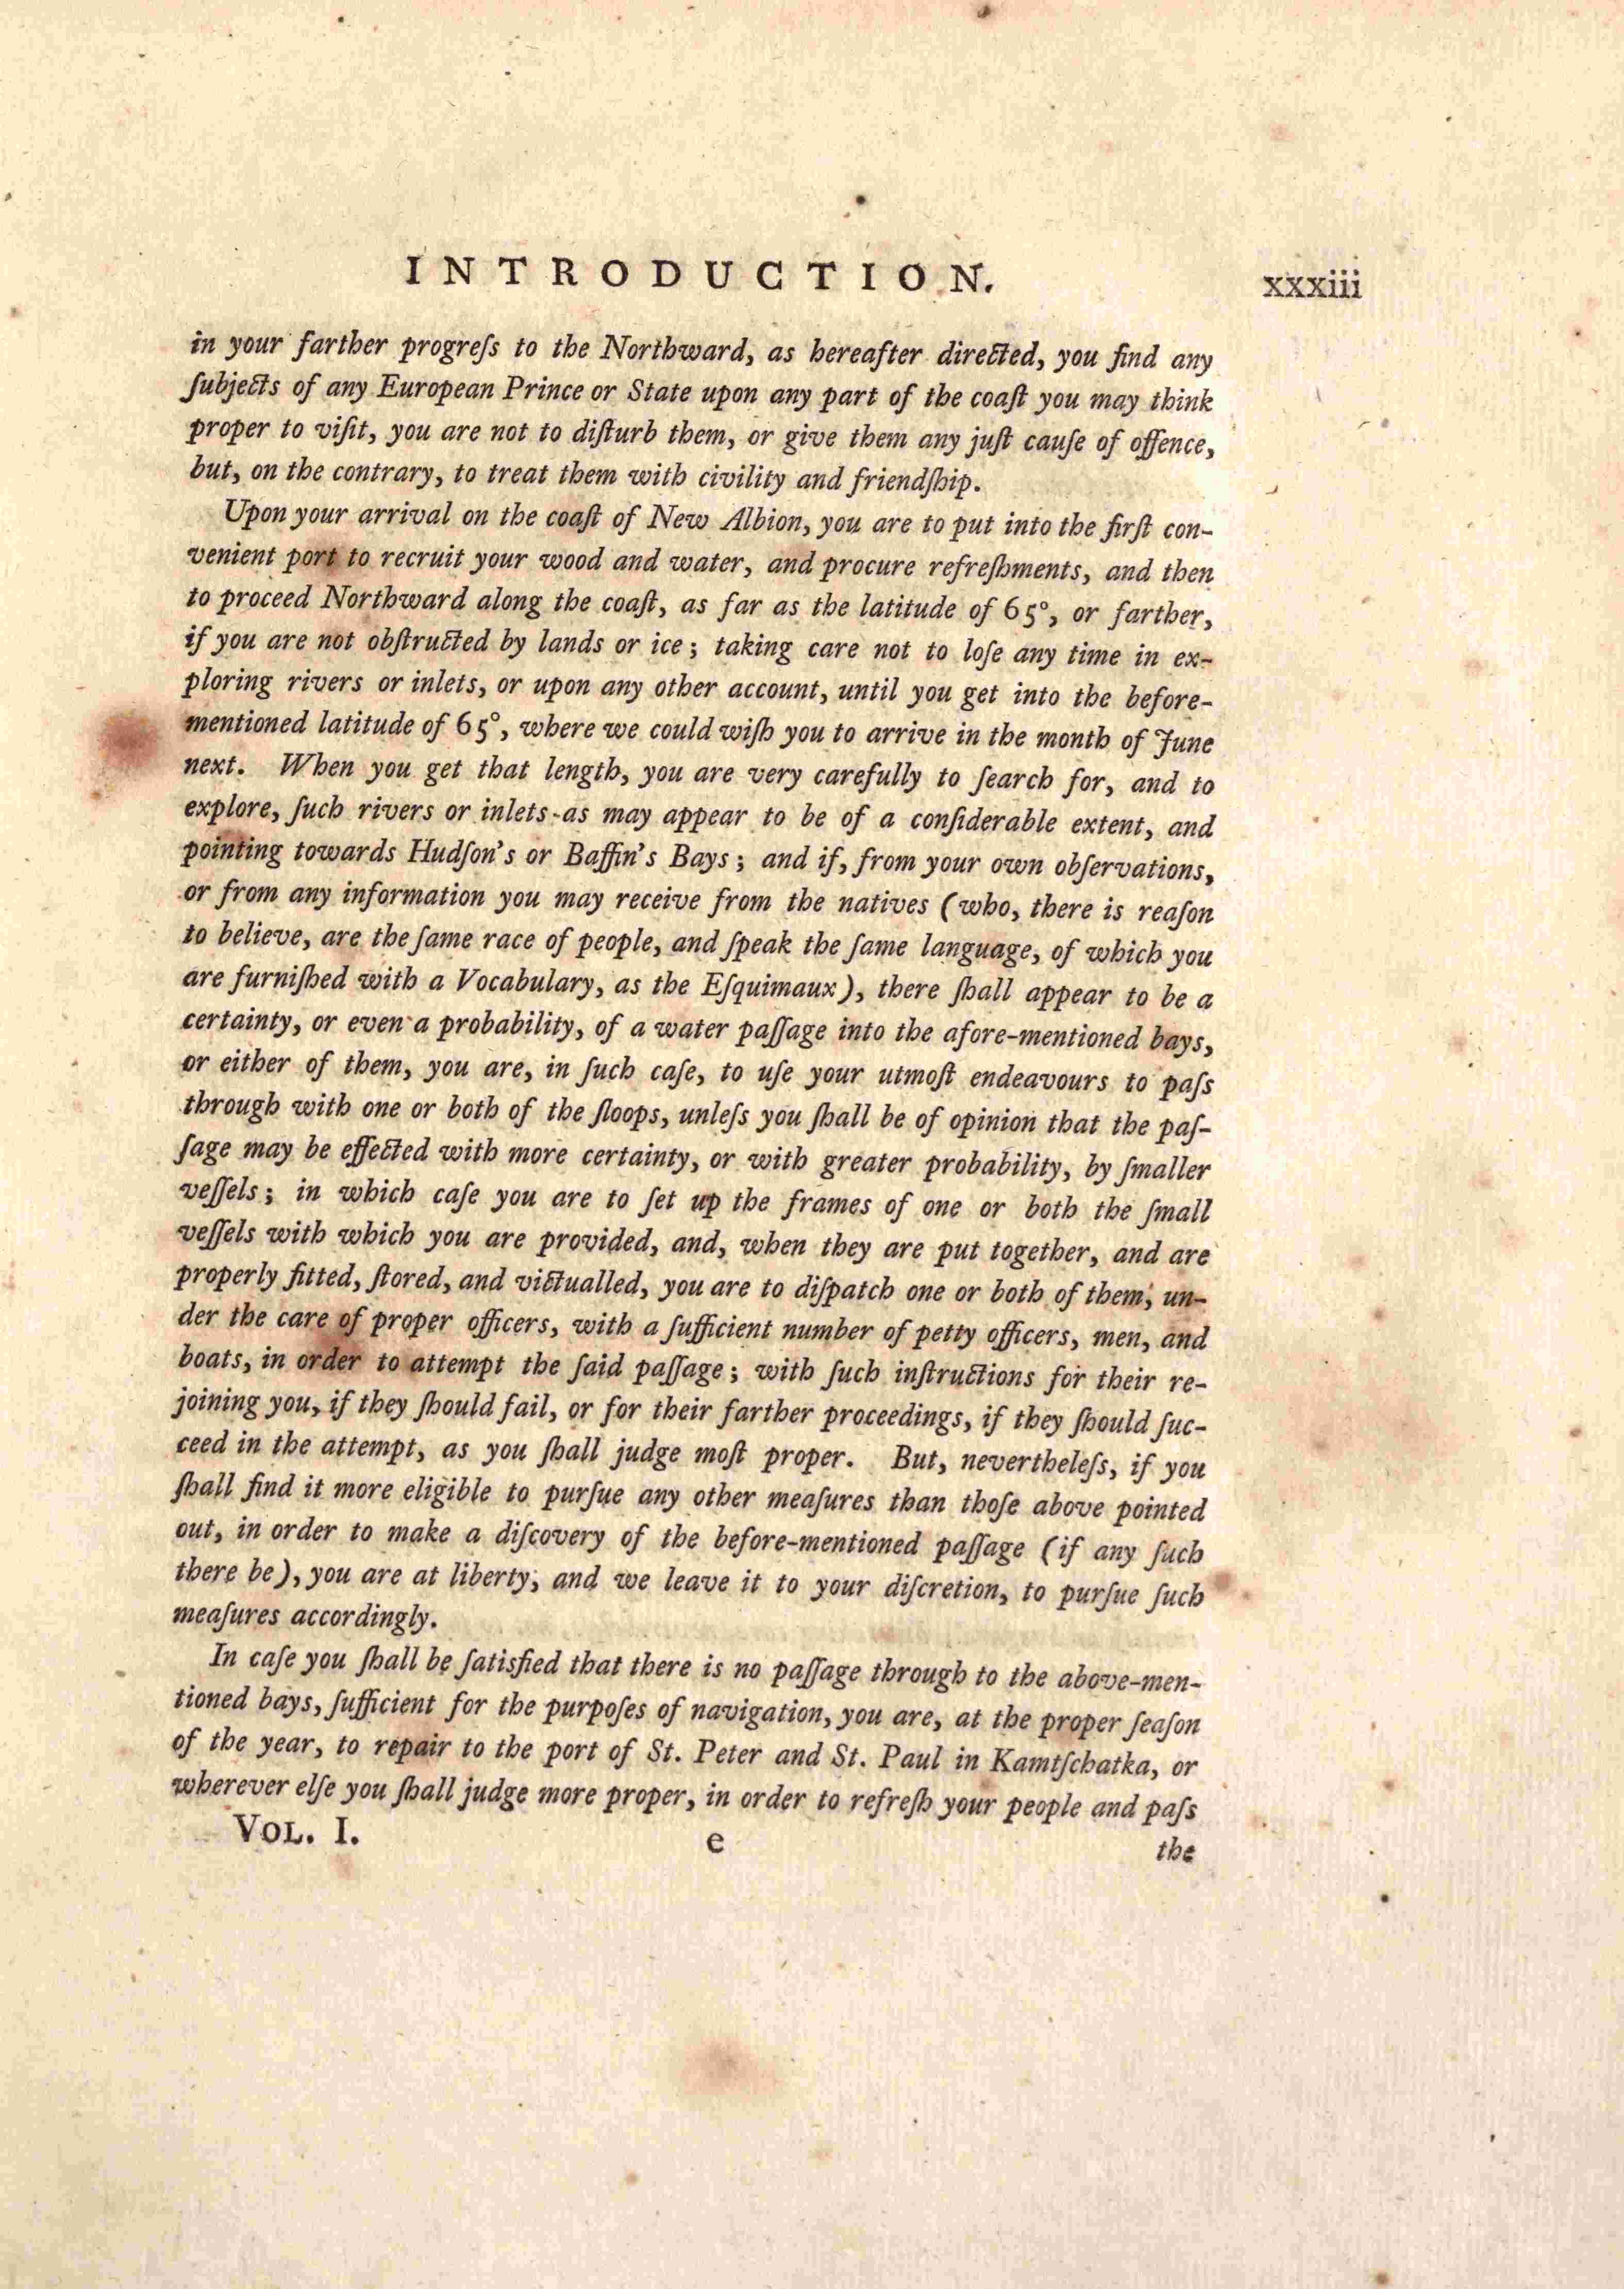 INTRODUCTION.
xxxiii
in your farther progreſs to the Northward, as hereafter directed, you find any
ſubjects of any European Prince or State upon any part of the coaſt you may think
proper to viſit, you are not to diſturb them, or give them any juſt cauſe of offence,
but, on the contrary, to treat them with civility and friendſhip.
Upon your arrival on the coaſt of New Albion, you are to put into the firſt con-
venient port to recruit your wood and water, and procure refreſhments, and then
to proceed Northward along the coaſt, as far as the latitude of 65°, or farther,
if you are not obſtructed by lands or ice; taking care not to loſe any time in ex-
ploring rivers or inlets, or upon any other account, until you get into the before-
mentioned latitude of 65°, where we could wiſh you to arrive in the month of June
next. When you get that length, you are very carefully to ſearch for, and to
explore, ſuch rivers or inlets as may appear to be of a conſiderable extent, and
pointing towards Hudſon's or Baffin's Bays; and if, from your own obſervations,
or from any information you may receive from the natives (who, there is reaſon
to believe, are the ſame race of people, and ſpeak the ſame language, of which you
are furniſhed with a Vocabulary, as the Eſquimaux), there ſhall appear to be a
certainty, or even a probability, of a water paſſage into the afore-mentioned bays,
or either of them, you are, in ſuch caſe, to uſe your utmoſt endeavours to paſs
through with one or both of the ſloops, unleſs you ſhall be of opinion that the paſ-
ſage may be effected with more certainty, or with greater probability, by ſmaller
veſſels; in which caſe you are to ſet up the frames of one or both the ſmall
veſſels with which you are provided, and, when they are put together, and are
properly fitted, ſtored, and victualled, you are to diſpatch one or both of them, un-
der the care of proper officers, with a ſufficient number of petty officers, men, and
boats, in order to attempt the ſaid paſſage; with ſuch inſtructions for their re-
joining you, if they ſhould fail, or for their farther proceedings, if they ſhould ſuc-
ceed in the attempt, as you ſhall judge moſt proper. But, nevertheleſs, if you
ſhall find it more eligible to purſue any other meaſures than thoſe above pointed
out, in order to make a diſcovery of the before-mentioned paſſage (if any ſuch
there be), you are at liberty, and we leave it to your diſcretion, to purſue ſuch
meaſures accordingly.
In caſe you ſhall be ſatisfied that there is no paſſage through to the above-men-
tioned bays, ſufficient for the purpoſes of navigation, you are, at the proper ſeaſon
of the year, to repair to the port of St. Peter and St. Paul in Kamtſchatka, or
wherever elſe you ſhall judge more proper, in order to refreſh your people and paſs
VOL. I.
e
the